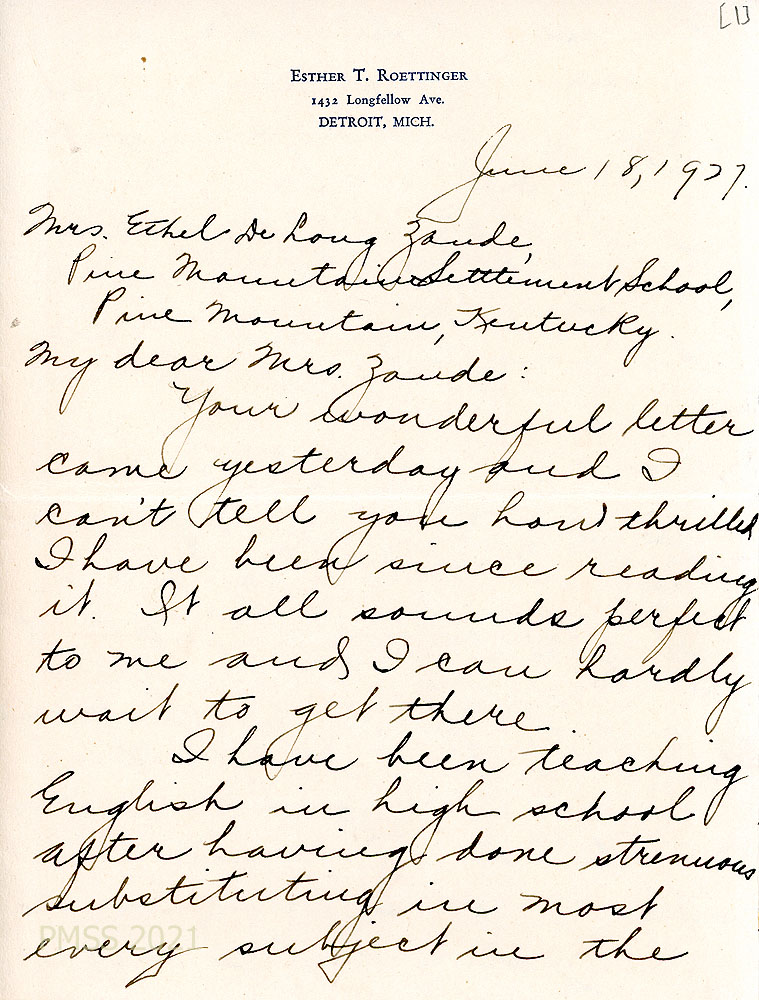 [1]
ESTHER T. ROETTINGER
1432 Longfellow Ave.
DETROIT, MICH.
June 18, 1927.
Mrs. Ethel De Long Zande,
Pine Mountain Settlement School,
Pine Mountain, Kentucky.
My dear Mrs. Zande:
Your wonderful letter
came yesterday and I
can't tell you how thrilled
I have been since reading
it. It all sounds perfect
to me and I can hardly
wait to get there.
I have been teaching
English in high school
after having done strenuous
substituting in most
every subject in the
PMSS 2021